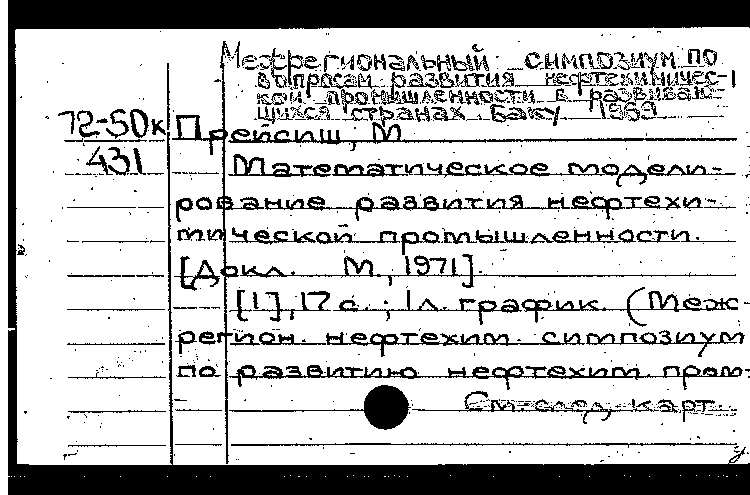 Межрегиональный симпозиум по
вопросам развития нефтехимичес-
кой промышленности в развиваю-
щихся странах Баку 1969
72-50к Прейсиш, М
431 Математическое модели-
рование развития нефтехи-
мической промышленности.
[Докл. М., 1971].
[1], 17 с.; 1 л. график. (Меж-
регион. нефтехим. симпозиум
по развитию нефтехим. пром-
См. след. карт.